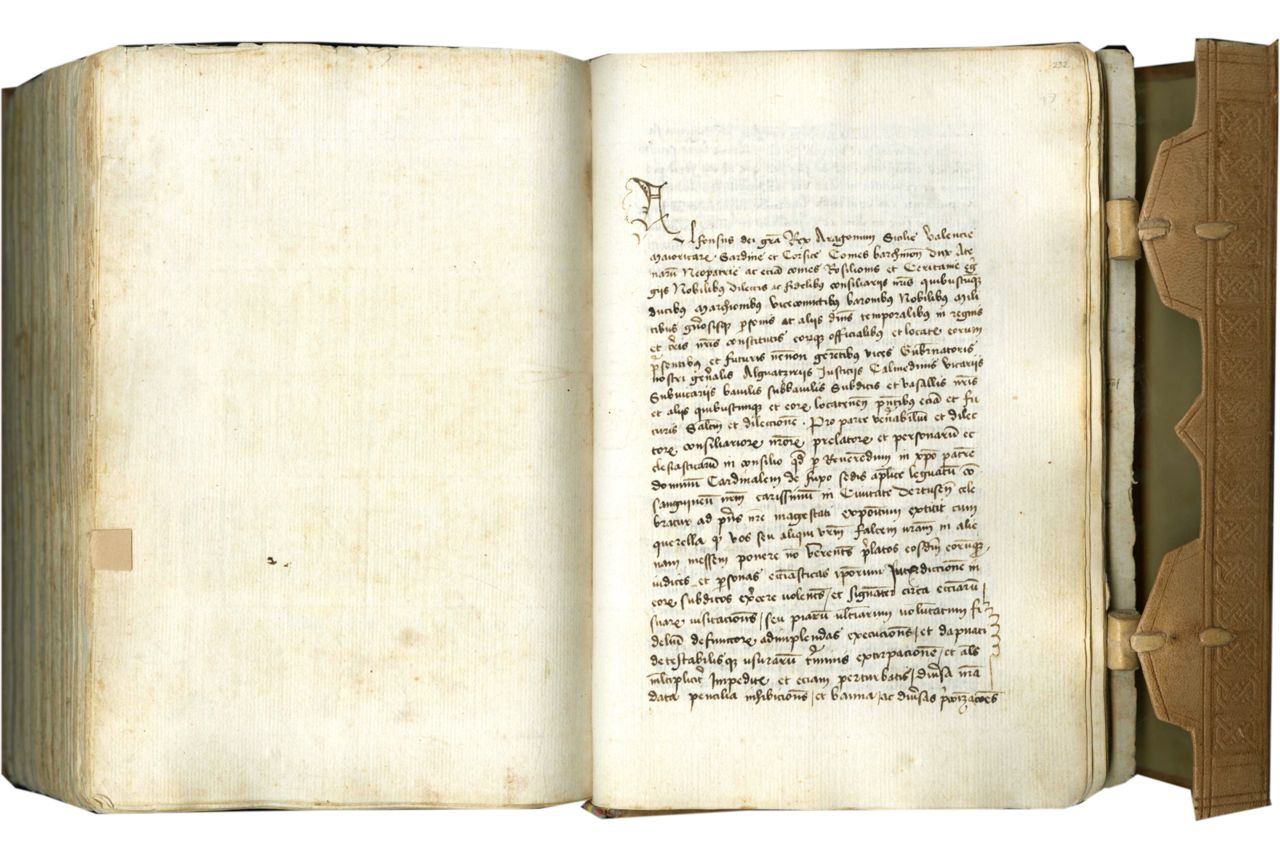 232
Alfonsus dei gra Rex Aragonum Sicilie Valencie
Maioricarꝝ Sardinie et Corsice Comes barchinon Dux Athe
narũ Neopatrie ac eciã comes Rosilionis et Ceritanie egr̃
gijs Nobilibꝫ dilectis ac fidelibꝫ consiliarijs nr̃is quibuscũqꝫ
ducibus Marchionibꝫ vicecomitibꝫ baronibꝫ Nobilibꝫ Mili
tibus gñosisqꝫ ꝑsonis ac alijs dñis temporalibꝫ in regnis
et tr̃is nr̃is constitutis eorũqꝫ officialibꝫ et locateñ eorum
p̃sentibꝫ et futuris necnon gerẽtibꝫ vices Gubernatoris
nostri gñalis Alguatzirijs Iusticijs Calmedinis vicarijs
Subvicarijs baiulis subbaiulis Subditis et vasallis nr̃is
et alijs quibuscunqꝫ et eorꝝ locateneñ p̃ntibus eciã et fu
turis Saltm̃ et dilectionẽ. Pro parte veñabiliũ et dilec
torꝝ consiliariorꝝ nr̃orꝝ prelatorꝝ et personarũ ec
clesiasticarũ in consilio qd̃ ꝑ Reuerendum in xp̃o patrẽ
dominũ Cardinalem de fuxo sedis aplice legatũ con
sanguineũ nr̃m carissimũ in Ciuitate Dertuseñ cele
bratur ad p̃ns nr̃e magestati expositum extitit cum
querella qꝫ vos seu aliqui vr̃m falcem vram in alie
nam messem ponere nõ verentes p̃latos eosdẽ eorũqꝫ
iudices et ꝑsonas ecciãsticas ipsorum Iurisdictionẽ in
eorꝝ subditos exꝯere volentes / et signater circa ecciarũ
suarꝝ visitaciones / seu piarũ ultiarum voluntatum fi
deliũ defunctorꝝ adimplendas execuciones / et dapnati
detestabilisqꝫ usurarũ cr̃iminis extirpacionẽ / et als
mltiplicitr̃ Impeditꝭ et eciam perturbatis / diuersa mã
data penalia inhibiciones / et banna / ac diuersas p̃conizacões